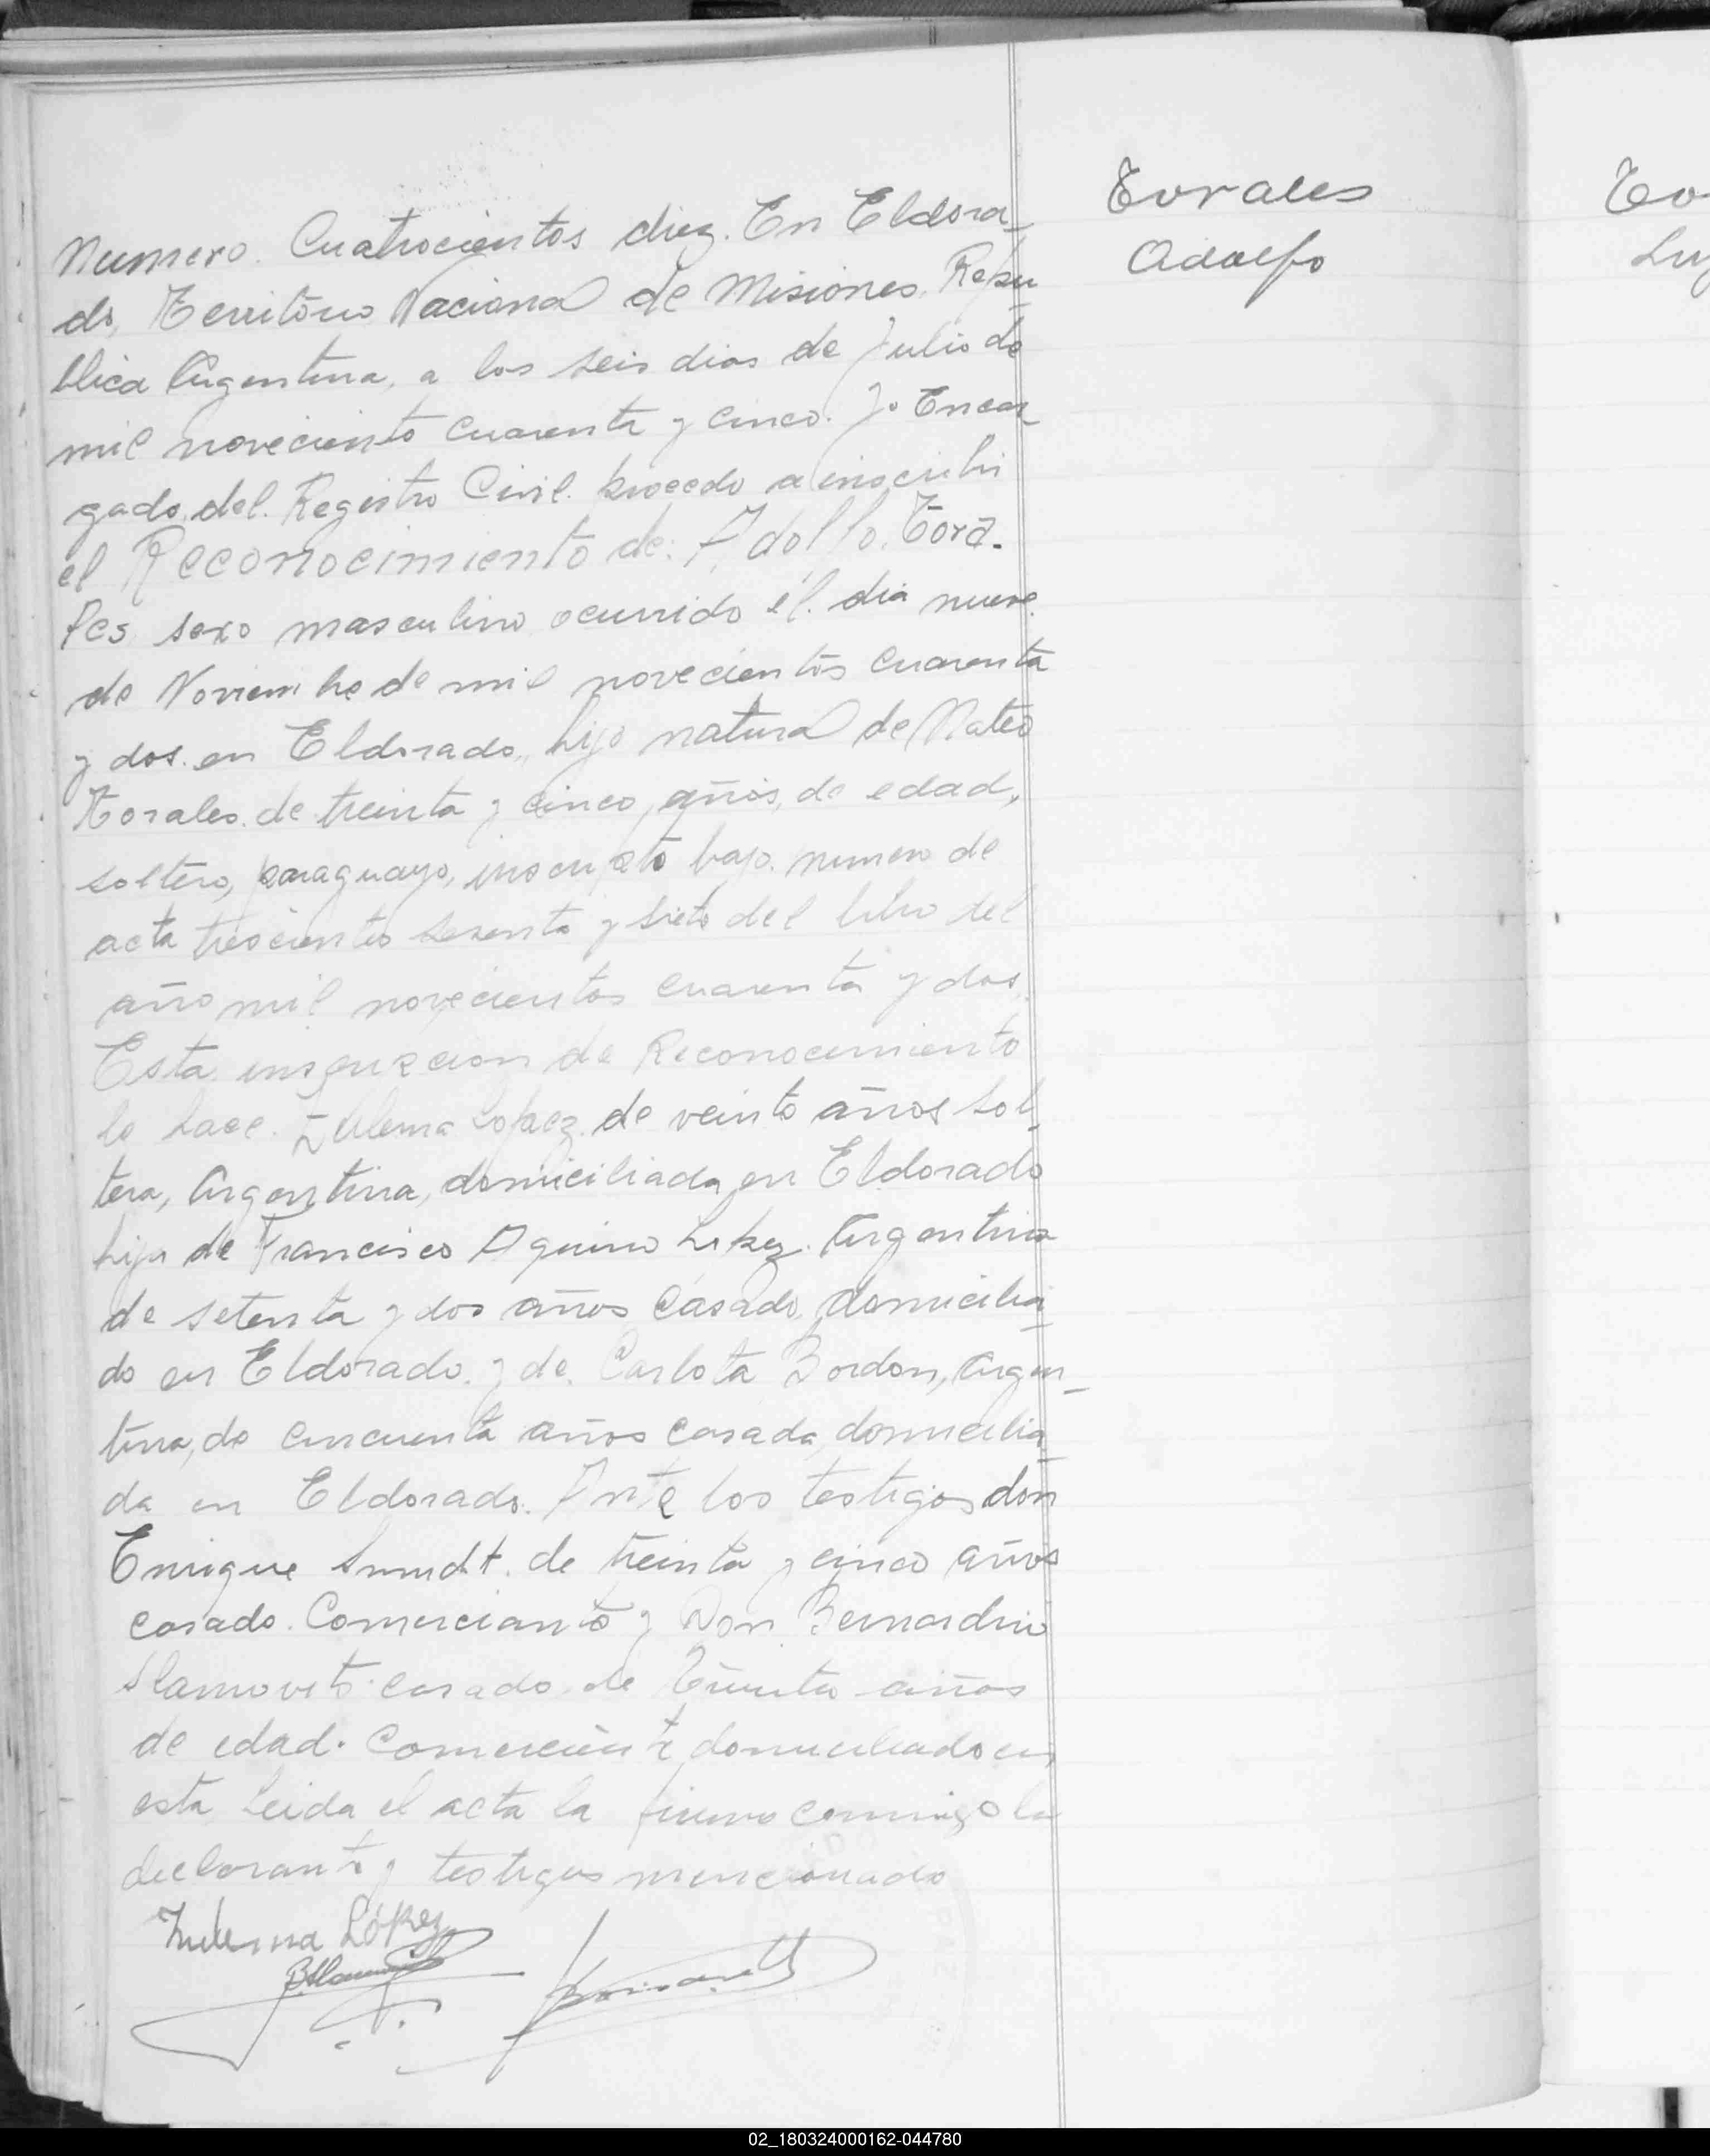 Numero. Cuatrocientos diez. En Eldora-
do, Territorio Nacional de Misiones, Repu-
blica Argentina, a los seis dias de Julio de
mil noveciento cuarenta y cinco. Yo Encar-
gado del Registro Civil procedo a inscribir
el Reconocimiento de: Adolfo. Tora-
les sexo masculino ocurrido el dia nueve
de Noviembre de mil novecientos cuarenta
y dos. en Eldorado, hijo natural de Mateo
Torales. de treinta y cinco, años, de edad,
soltero, paraguayo, inscripto bajo. numero de
acta trescientos sesenta y siete del libro del
año mil novecientos cuarenta y dos.
Esta inscripcion de Reconocimiento
lo hace. Zulema Lopez. de veinte años sol-
tera, Argentina, domiciliada en Eldorado
hija de Francisco Aquino Lopez. Argentino
de setenta y dos años casado, domicilia-
do en Eldorado. y de. Carlota Bordon, Argen-
tina, de cincuenta años casada, domicilia-
da en Eldorado. Ante los testigos don
Enrique de treinta y cinco años
casado. Comerciante y Don Bernardino
casado de treinta años
de edad. Comerciante domiciliado en
esta, Leida el acta la firmo conmigo la
declarante y testigos mencionado
Zulema López
Torales
Adolfo
To
Lu
02_180324000162-044780